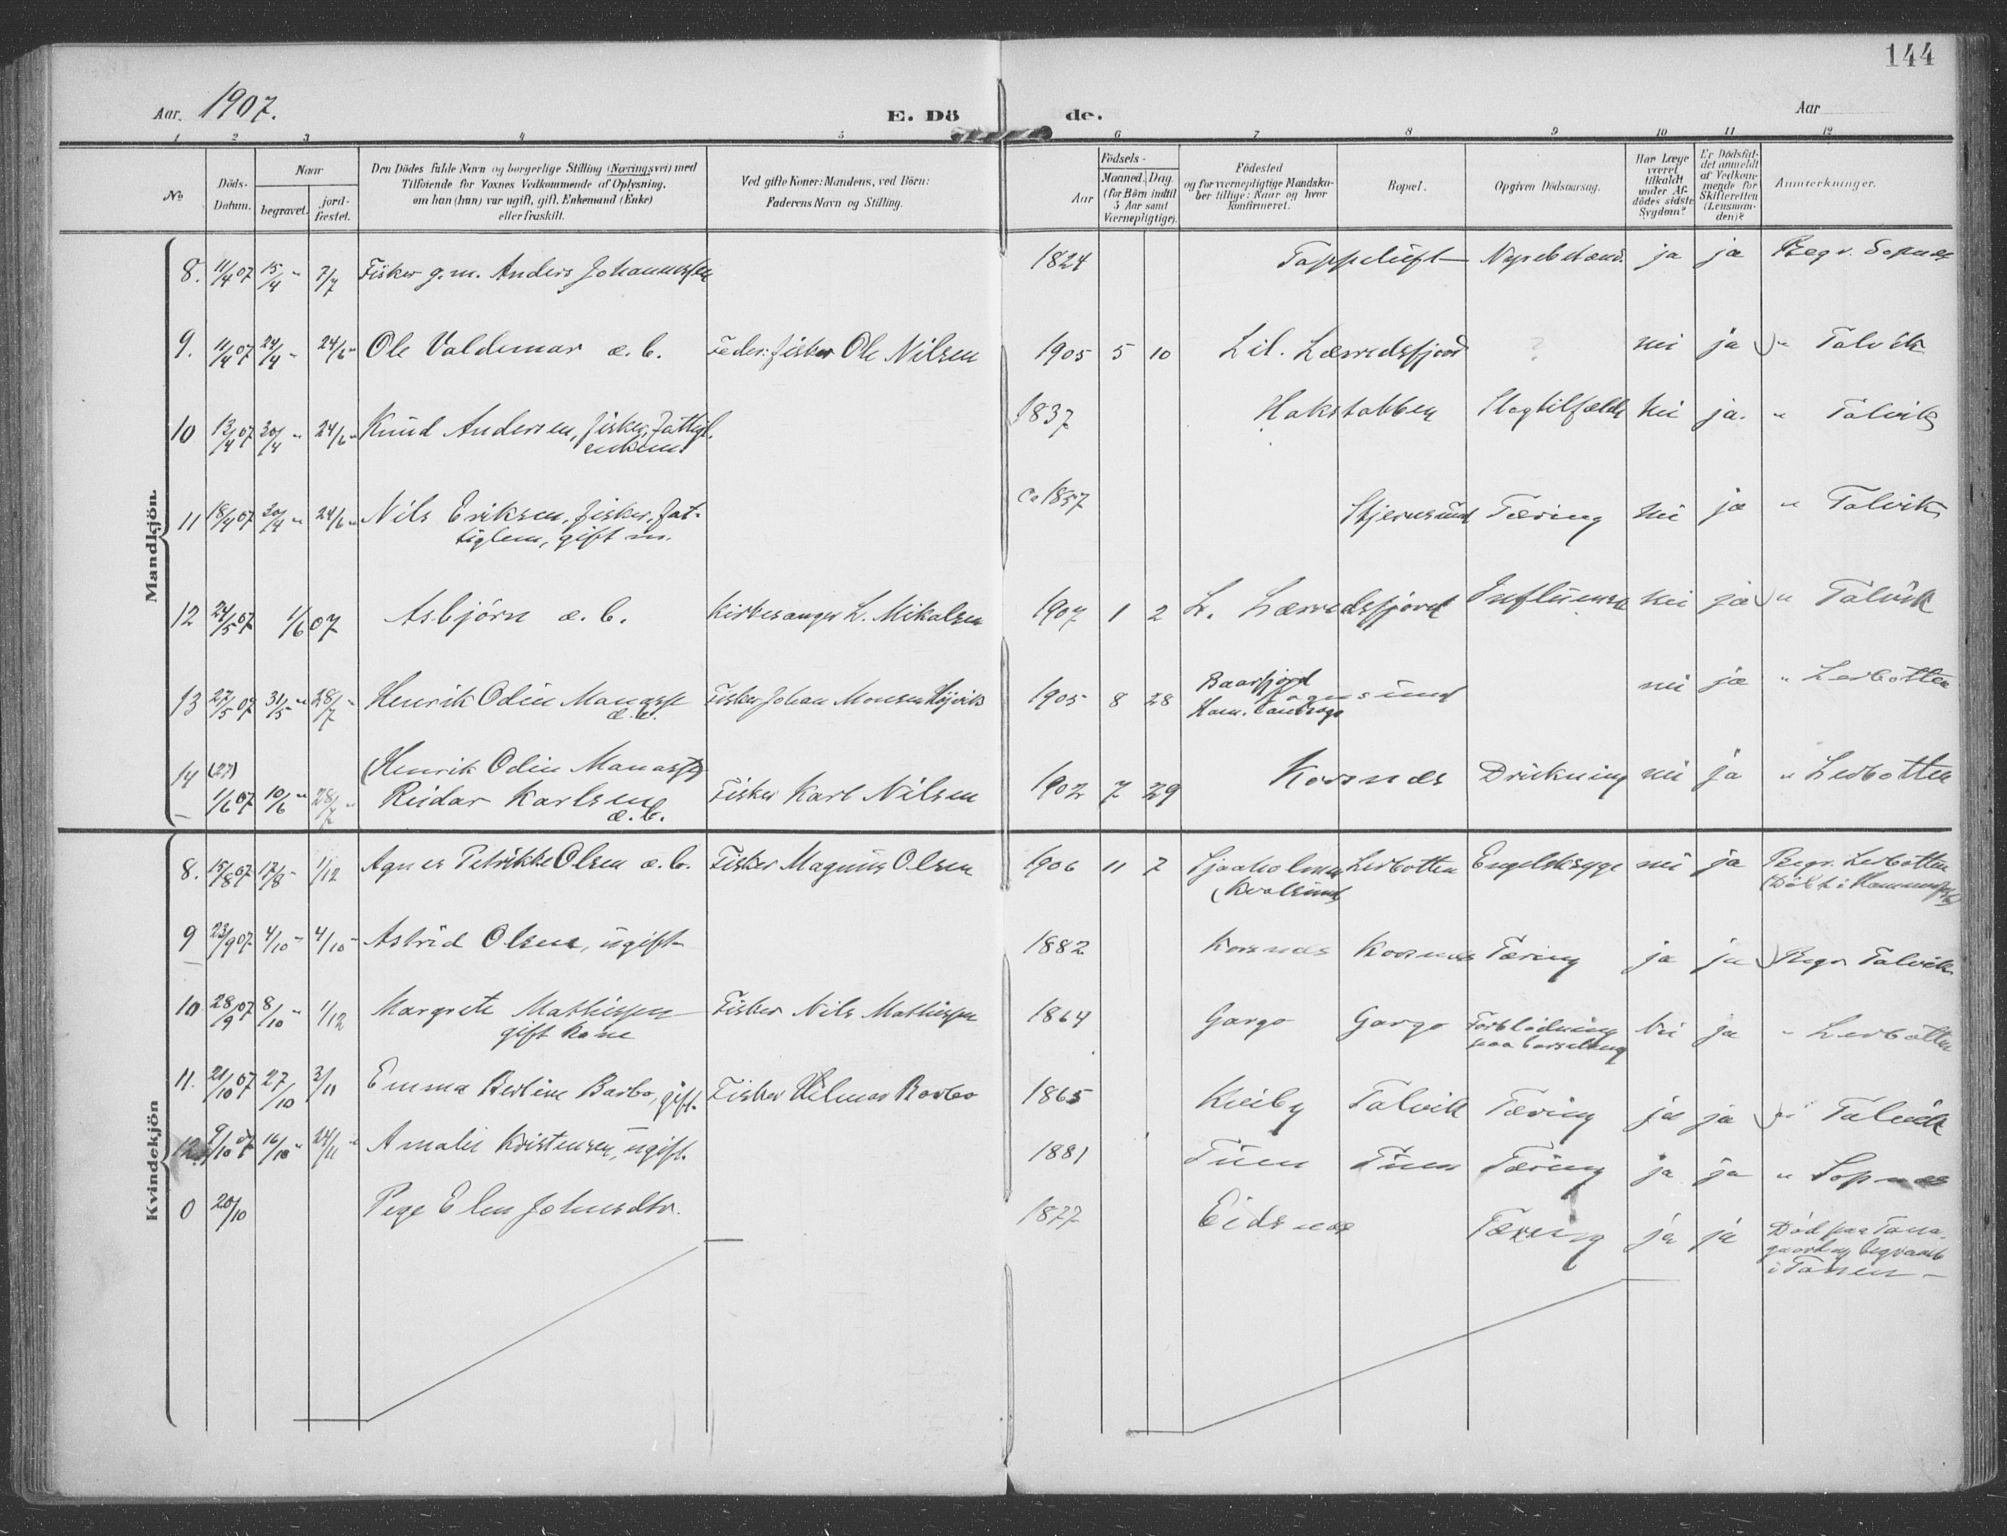 144
Aar 1907. E. Dö de. Aar
1 2 3 4 5 6 7 8 9 10 11 12
No
Döds-Datum.
Naar
begravet.
jord-fæstet.
Den Dödes fulde Navn og borgerlige Stilling (Næringsvei) med
Tilföiende for Voxnes Vedkommende af Oplysning,
om han (hun) var ugift, gift, Enkemand (Enke)
eller fraskilt.
Ved gifte Koner: Mandens, ved Börn:
Faderens Navn og Stilling.
Födsels-
Aar
Maaned. Dag.
(for Börn indtil
5 Aar samt
Værnepligtige).
Födested
og for værnepligtige Mandska-
ber tillige: Naar og hvor
konfirmeret.
Bopæl.
Opgiven Dödsaarsag.
Har Læge
været
tilkaldt
under Af-
dödes sidste
Sygdom?
Er Dödsfal-
det anmeldt
af Vedkom-
mende for
Skifteretten
(Lensman-
den)?
Anmærkninger.
Mandkjön.
8. 11/4 07 15/4 " 7/7 Fisker g.m. Anders Johannessen 1824 Tappeluft ja ja Begr. Sopnes
9. 11/4 07 24/4 " 24/6 " Ole Valdemar æ. b. Fader: fisker Ole Nilsen 1905 5 10 Lil. Lærredsfjord ? nei ja " Talvik
10 13/4 07 20/4 " 24/6 " Knud Andersen, fisker, fattigl.
enkem.
1837 Hakstabben Slagtilfælde nei ja. " Talvik
11 18/4 07 20/4 " 24/6 " Nils Eriksen, fisker, fat-
tiglem, gift m.
Ca 1837 Stjernsund Tæring nei ja " Talvik
12 24/5 07 1/6 07 Asbjörn æ. b. Kirkesanger L. Mikalsen 1907 1 2 L. Lærredsfjord Influensa nei ja " Talvik
13 27/5 07 31/5 " 28/7 " Henrik Odin
æ.b.
Fisker Johan Monsen 1905 8 28 Baarfjord
Ham. Landsogn
nei ja " Lerbotten
14 (27) (Henrik Odin
1/6 07 10/6 " 28/7 " Reidar Karlsen
æ.b.
Fisker Karl Nilsen 1902 7 29 Korsnæs Drukning nei ja " Lerbotten
Kvindekjön
8. 15/8 07 17/8 " 1/12 Agnes Petrikke Olsen æ. b. Fisker Magnus Olsen 1906 11 7 Lerbotten Engelsksyge nei ja Begr. Lerbotten
(Kvalsund)
9 23/9 07 4/10 " 4/10 " Astrid Olsen, ugift 1882 Korsnæs Korsnæs Tæring ja ja Begr Talvik
10 28/9 07 8/10 " 1/12 Margrete Mathissen
gift kone
Fisker Nils Mathissen 1864 Gargo Gargo Forblödning
paa barselseng
nei ja " Lerbotten
11. 21/10 07 27/10 3/11 Emma Berline Barbo, gift. Fisker Hilmar Barbo 1865 Kviby Talvik Tæring ja ja " Talvik
12 9/10 07 16/10 " 24/11 " Amalie Kristensen, ugift. 1881 Tuen Tuen Tæring ja ja " Sopnes
0 20/10 Elen Johnsdtr. 1877 Eidsnæs Tæring ja ja Död paa Tana-
gaard og begravet
i Tanen